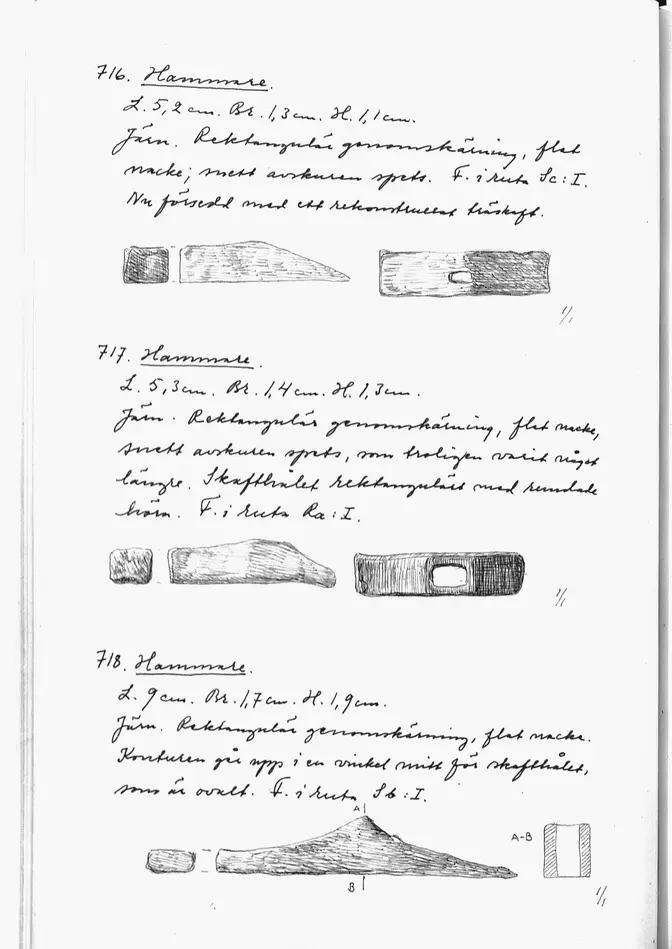 716. Hammare.
L. 5,2 cm. Br. 1,3 cm. H. 1,1 cm.
Järn. Rektangulär genomskärning, flat
nacke; snett avskuren spets. F. i ruta Sc:I.
Nu försedd med ett rekonstruerat träskaft.
1/1
717. Hammare.
L. 5,3 cm. Br. 1,4 cm. H. 1,3 cm.
Järn. Rektangulär genomskärning, flat nacke,
snett avskuren spets, som troligen varit något
längre. Skafthålet rektangulärt med rundade
hörn. F. i ruta Ra:I.
1/1
718. Hammare.
L. 9 cm. Br. 1,7 cm. H. 1,9 cm.
Järn. Rektangulär genomskärning, flat nacke.
Konturen går upp i en vinkel mitt för skafthålet,
som är ovalt. F. i ruta Sb:I.
A
A-B
B
1/1